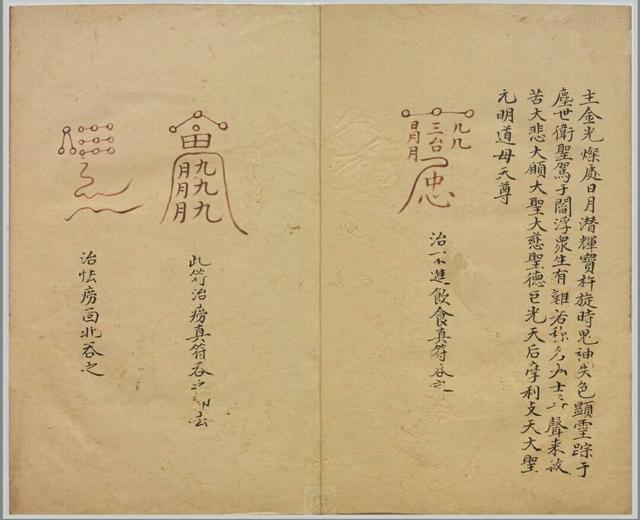 主金光燦處日月潛輝寶杵旋時鬼神失色顯靈踪于
塵世衛聖駕于閻浮衆生有難若称名大士聲来救
苦大悲大願大聖大慈聖德巨光天后摩利支天大聖
元明道母天尊
三台
日月月
忠
治不進飲食真符吞之
畗
九九九
月月月
此符治癆真符吞之即去
治怯癆面北吞之